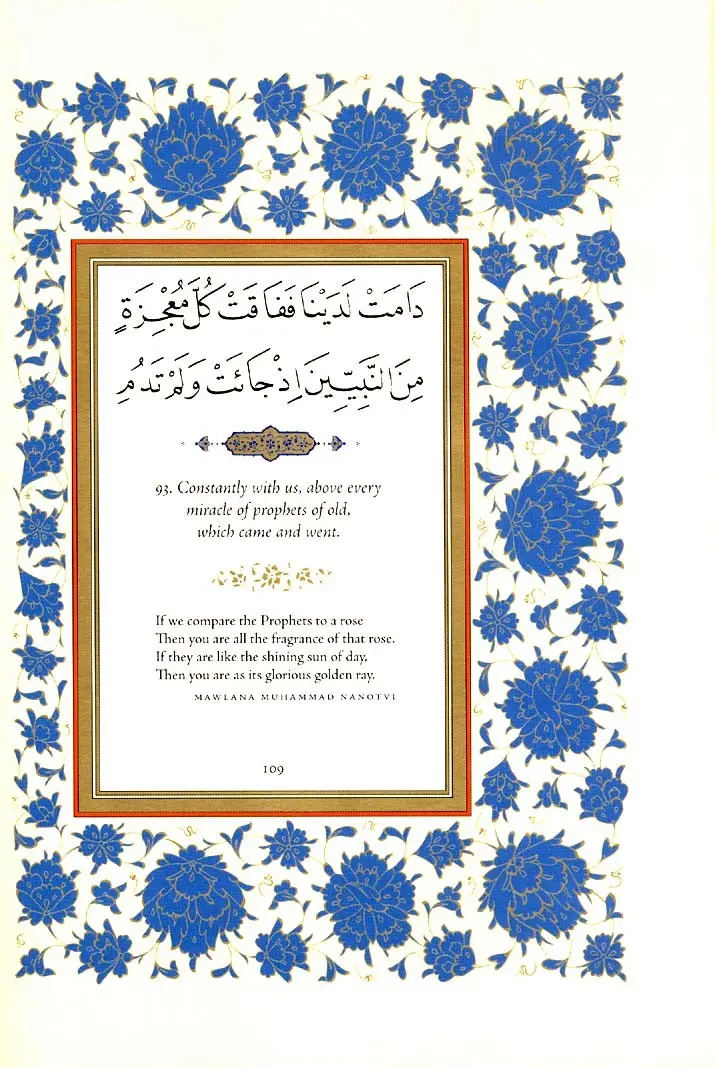 دَامَتْ لَدَيْنَا فَفَاقَتْ كُلَّ مُعْجِزَةٍ
مِنَ النَّبِيِّينَ اِذْ جَائَتْ وَلَمْ تَدُمِ
93. Constantly with us, above every
miracle of prophets of old,
which came and went.
If we compare the Prophets to a rose
Then you are all the fragrance of that rose.
If they are like the shining sun of day,
Then you are as its glorious golden ray.
MAWLANA MUHAMMAD NANOTVI
109